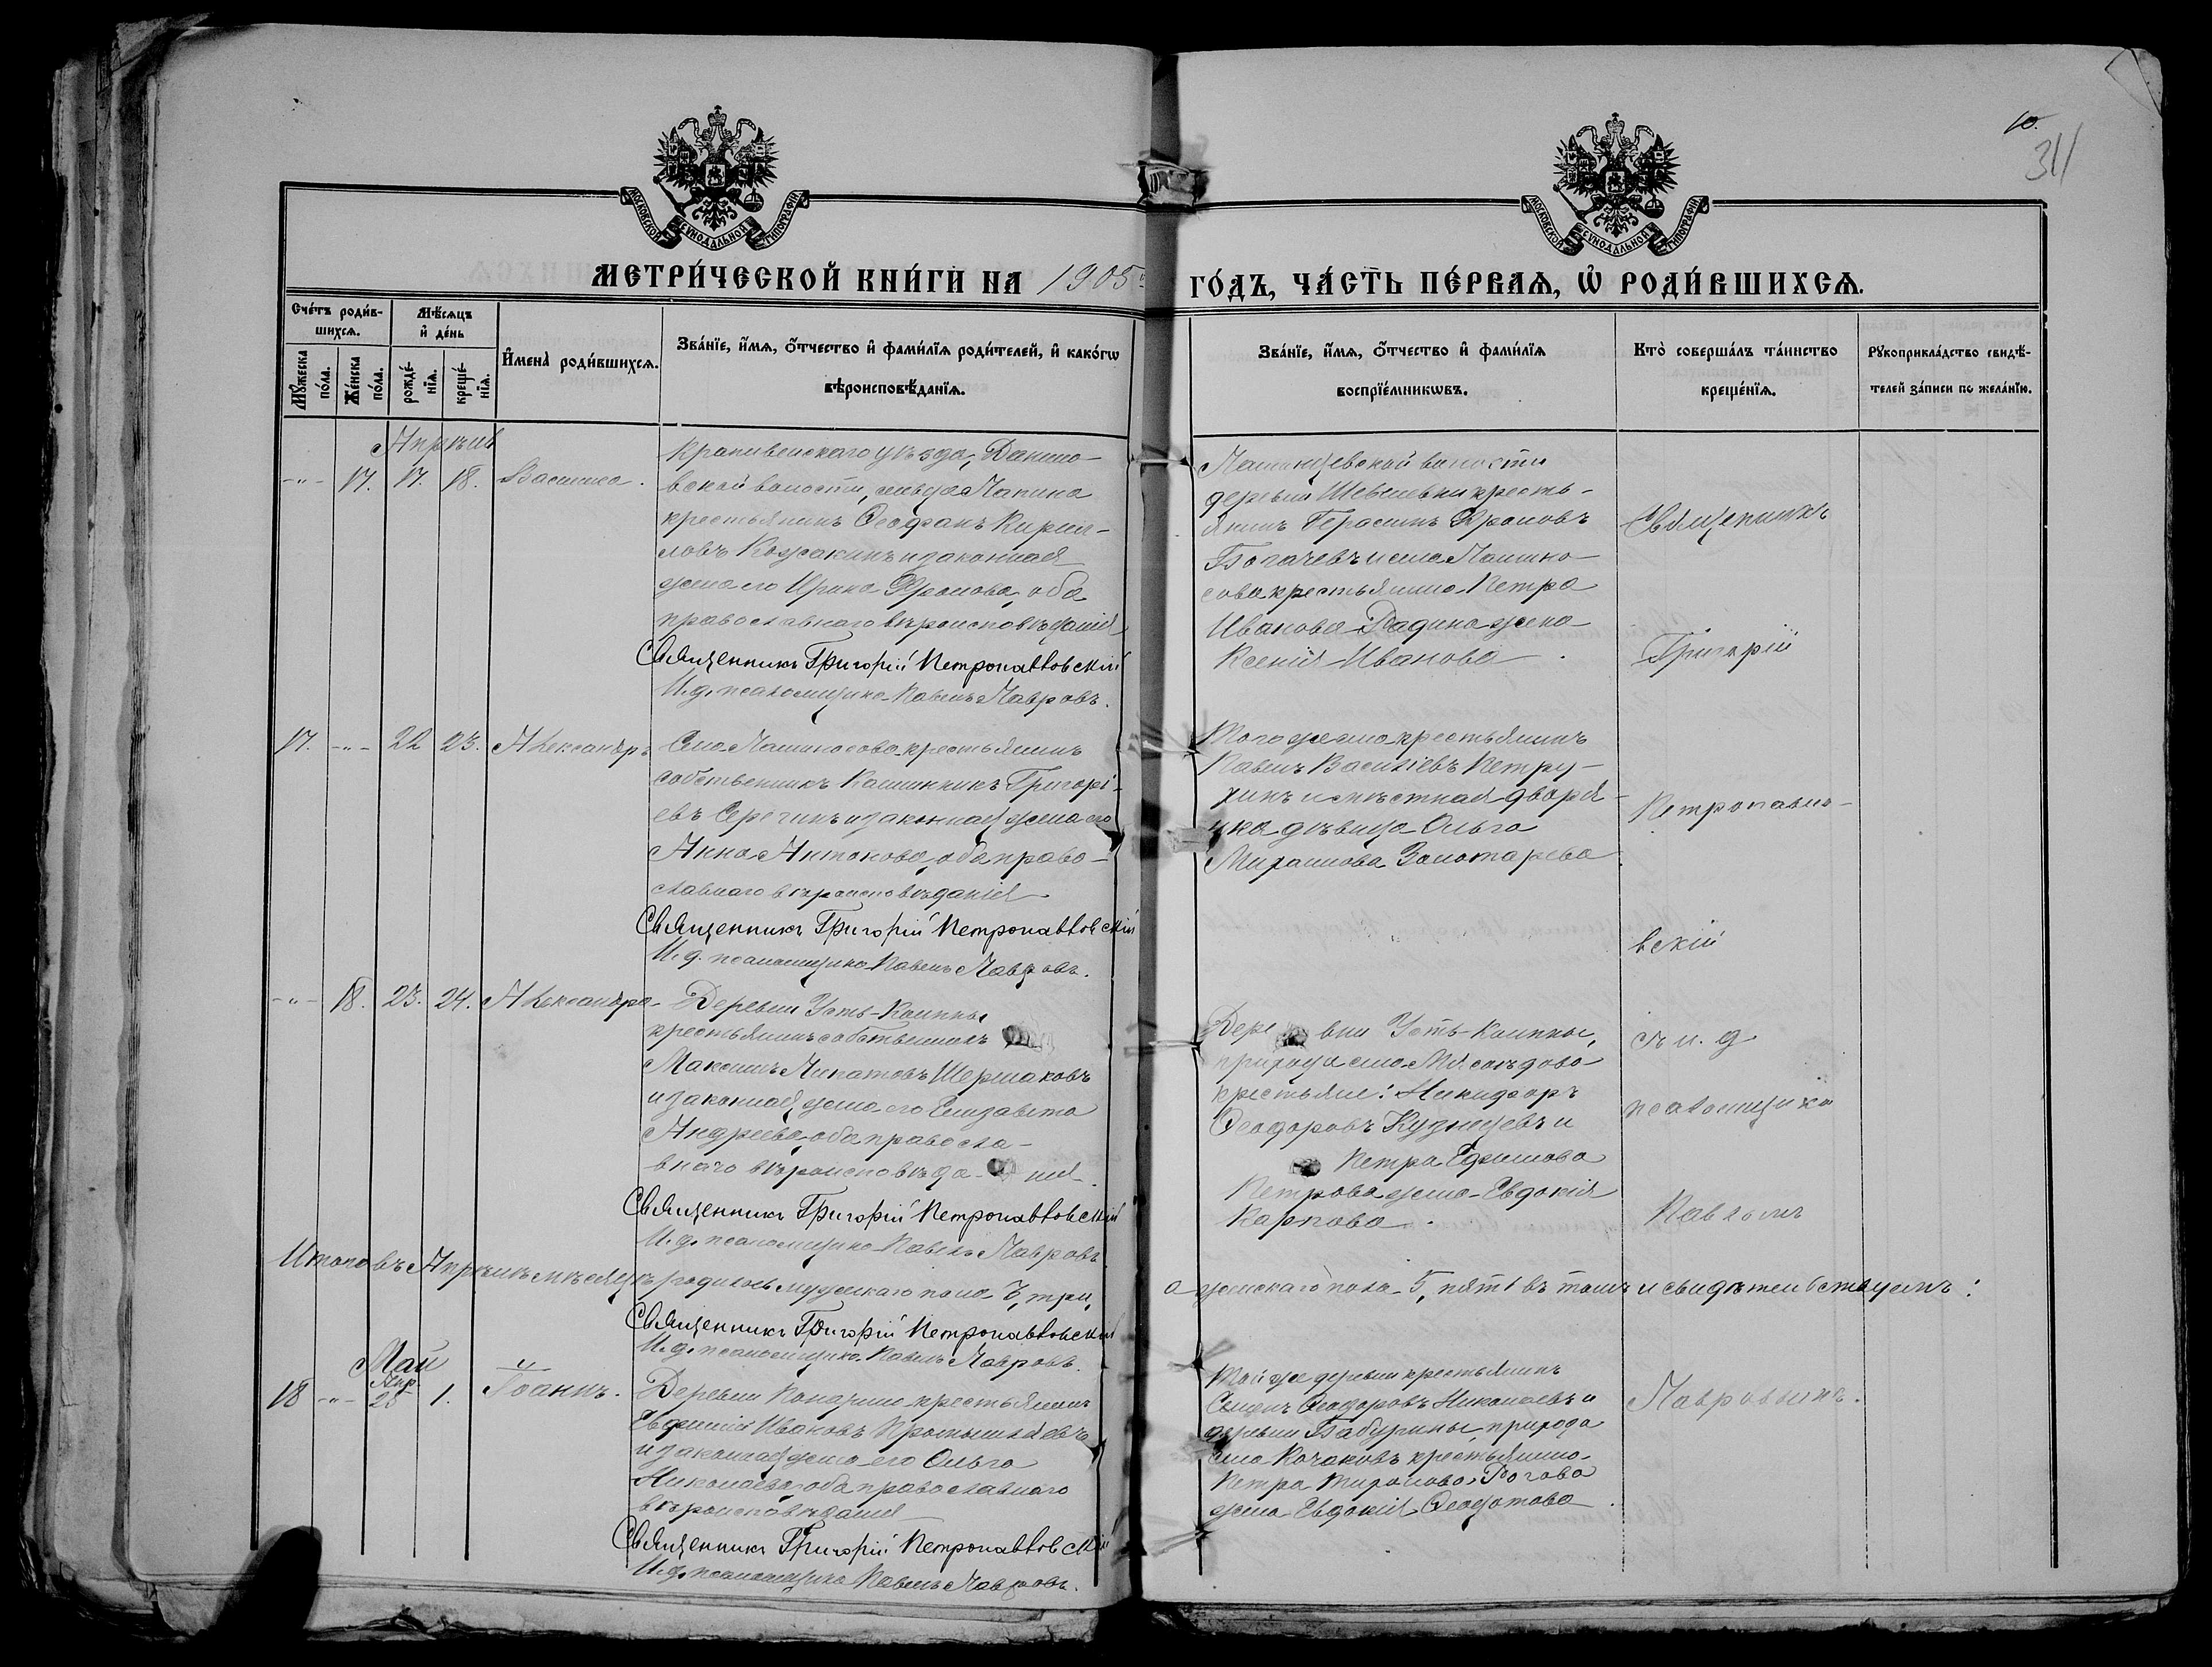 10.
311
МОСКОВСКОЙ СѴНОДАЛЬНОЙ ТИПОГРАФІИ
МОСКОВСКОЙ СѴНОДАЛЬНОЙ ТИПОГРАФІИ
МЕТРИ́ЧЕСКОЙ КНИ́ГИ НА 1905
ГО́ДЪ, ЧА́СТЬ ПЕ́РВАѦ, Ѡ РОДИ́ВШИХСѦ.
Сче́тъ роди́в-
шихсѧ.
Мѣ́сѧцъ
и҆ де́нь
Мꙋ́жеска
по́ла.
Же́нска
по́ла.
рожде́-
нїѧ.
креще́-
нїѧ.
И҆мена̀ роди́вшихсѧ.
Зва́нїе, и҆́мѧ, ѻ҆́тчество и҆ фами́лїѧ роди́телей, и҆ како́гѡ
вѣроисповѣ́данїѧ.
Зва́нїе, и҆́мѧ, ѻ҆́тчество и҆ фами́лїѧ
воспрїе́мникѡвъ.
Кто̀ соверша́лъ та́инство
креще́нїѧ.
Рꙋкоприкла́дство свидѣ́-
телей за́писи по жела́нїю.
Апрѣль
-"- 17. 17. 18. Василиса.
Крапивенскаго уѣзда, Данило-
вской волости, сельца Лапина
крестьянинъ Ѳеофанъ Кирил-
ловъ Кожакинъ и законная
жена его Ирина Фролова, оба
православнаго вѣроисповѣданія
Священникъ Григорій Петропавловскій
И. д. псаломщика Павелъ Лавровъ.
волости
деревни кресть-
янинъ Герасимъ Фроловъ
Богачевъ и села Лашко-
сова крестьянина Петра
Иванова Радина жена
Ксенія Иванова.
Священникъ
Григорій
17. -"- 22 23. Александръ
Села Лашкосова крестьянинъ
собственникъ Калинникъ Григорі-
евъ Серегинъ и законная жена его
Анна Антонова, оба право-
славнаго вѣроисповѣданія
Священникъ Григорій Петропавловскій
И. д. псаломщика Павелъ Лавровъ.
Того же села крестьянинъ
Павелъ Васильевъ Петру-
хинъ и мѣстная дворя-
нка дѣвица Ольга
Михайлова Золотарева
Петропавло-
вскій
-"- 18. 23. 24. Александра
Деревни Усть-Колпны
крестьянинъ собственникъ
Максимъ Ипатовъ Шермаковъ
и законная жена его Елизавета
Андреева, оба правосла-
внаго вѣроисповѣда- нія.
Священникъ Григорій Петропавловскій
И. д. псаломщика Павелъ Лавровъ.
Дере вни Усть-Колпны,
прихода села Мясоѣдова
крестьяне: Никифоръ
Ѳеодоровъ Кузнецевъ и
Петра Ефимова
Петрова жена Евдокія
Карпова.
съ и. д
псаломщика
Павломъ
Итого въ Апрѣлѣ мѣсяцѣ родилось мужескаго пола 3, три,
а женскаго пола 5, пять въ томъ и свидѣтельствуемъ:
Священникъ Григорій Петропавловскій
И. д. псаломщика Павелъ Лавровъ.
Май
Апр.
18 -"- 25 1. Іоаннъ.
Деревни крестьянинъ
Евфимій Ивановъ Промышляевъ
и законная жена его Ольга
Николаева, оба православнаго
вѣроисповѣданія
Священникъ Григорій Петропавловскій
И. д. псаломщика Павелъ Лавровъ.
Той же деревни крестьянинъ
Семенъ Ѳеодоровъ Николаевъ и
деревни Бабурины, прихода
села Кочаковъ крестьянина
Петра Рогова
жена Евдокія Ѳеодотова.
Лавровымъ.